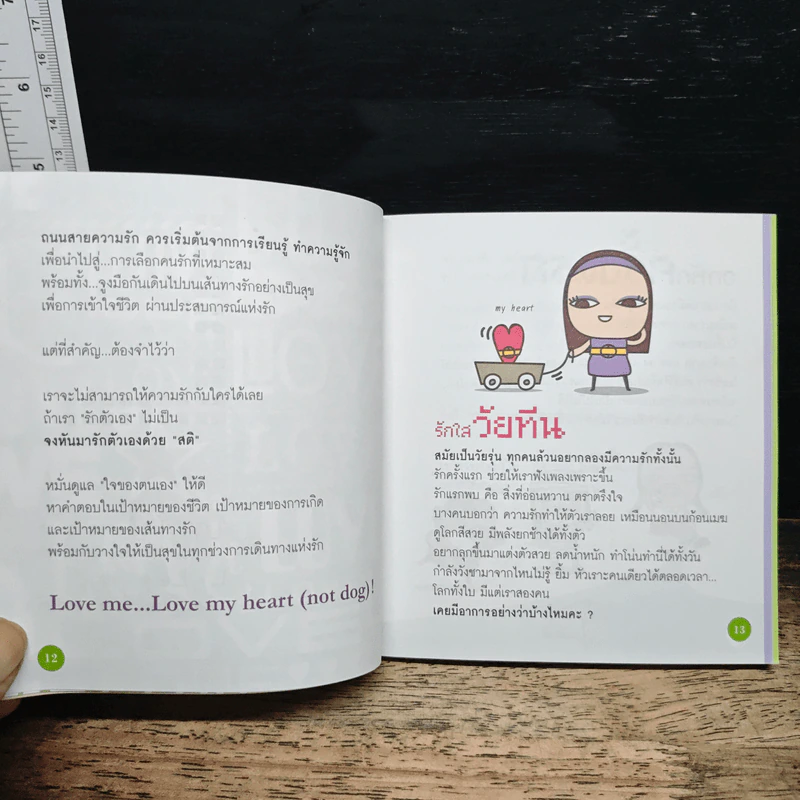 ถนนสายความรัก ควรเริ่มต้นจากการเรียนรู้ ทำความรู้จัก
เพื่อนำไปสู่...การเลือกคนรักที่เหมาะสม
พร้อมทั้ง...จูงมือกันเดินไปบนเส้นทางรักอย่างเป็นสุข
เพื่อการเข้าใจชีวิต ผ่านประสบการณ์แห่งรัก
แต่ที่สำคัญ...ต้องจำไว้ว่า
เราจะไม่สามารถให้ความรักกับใครได้เลย
ถ้าเรา "รักตัวเอง" ไม่เป็น
จงหันมารักตัวเองด้วย "สติ"
หมั่นดูแล "ใจของตนเอง" ให้ดี
หาคำตอบในเป้าหมายของชีวิต เป้าหมายของการเกิด
และเป้าหมายของเส้นทางรัก
พร้อมกับวางใจให้เป็นสุขในทุกช่วงการเดินทางแห่งรัก
Love me...Love my heart (not dog)!
12
my heart
รักใส วัยทีน
สมัยเป็นวัยรุ่น ทุกคนล้วนอยากลองมีความรักทั้งนั้น
รักครั้งแรก ช่วยให้เราฟังเพลงเพราะขึ้น
รักแรกพบ คือ สิ่งที่อ่อนหวาน ตราตรึงใจ
บางคนบอกว่า ความรักทำให้ตัวเราลอย เหมือนนอนบนก้อนเมฆ
ดูโลกสีสวย มีพลังยกช้างได้ทั้งตัว
อยากลุกขึ้นมาแต่งตัวสวย ลดน้ำหนัก ทำโน่นทำนี่ได้ทั้งวัน
กำลังวังชามาจากไหนไม่รู้ ยิ้ม หัวเราะคนเดียวได้ตลอดเวลา...
โลกทั้งใบ มีแต่เราสองคน
เคยมีอาการอย่างว่าบ้างไหมคะ ?
13
17
16
15
14
13
6
5